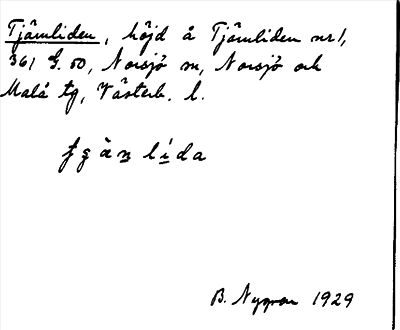 Tjärnliden, höjd å Tjärnliden nr 1,
361 G. 50, Norsjö sn, Norsjö och
Malå tg, Västerb. l.
B. Nygren 1929